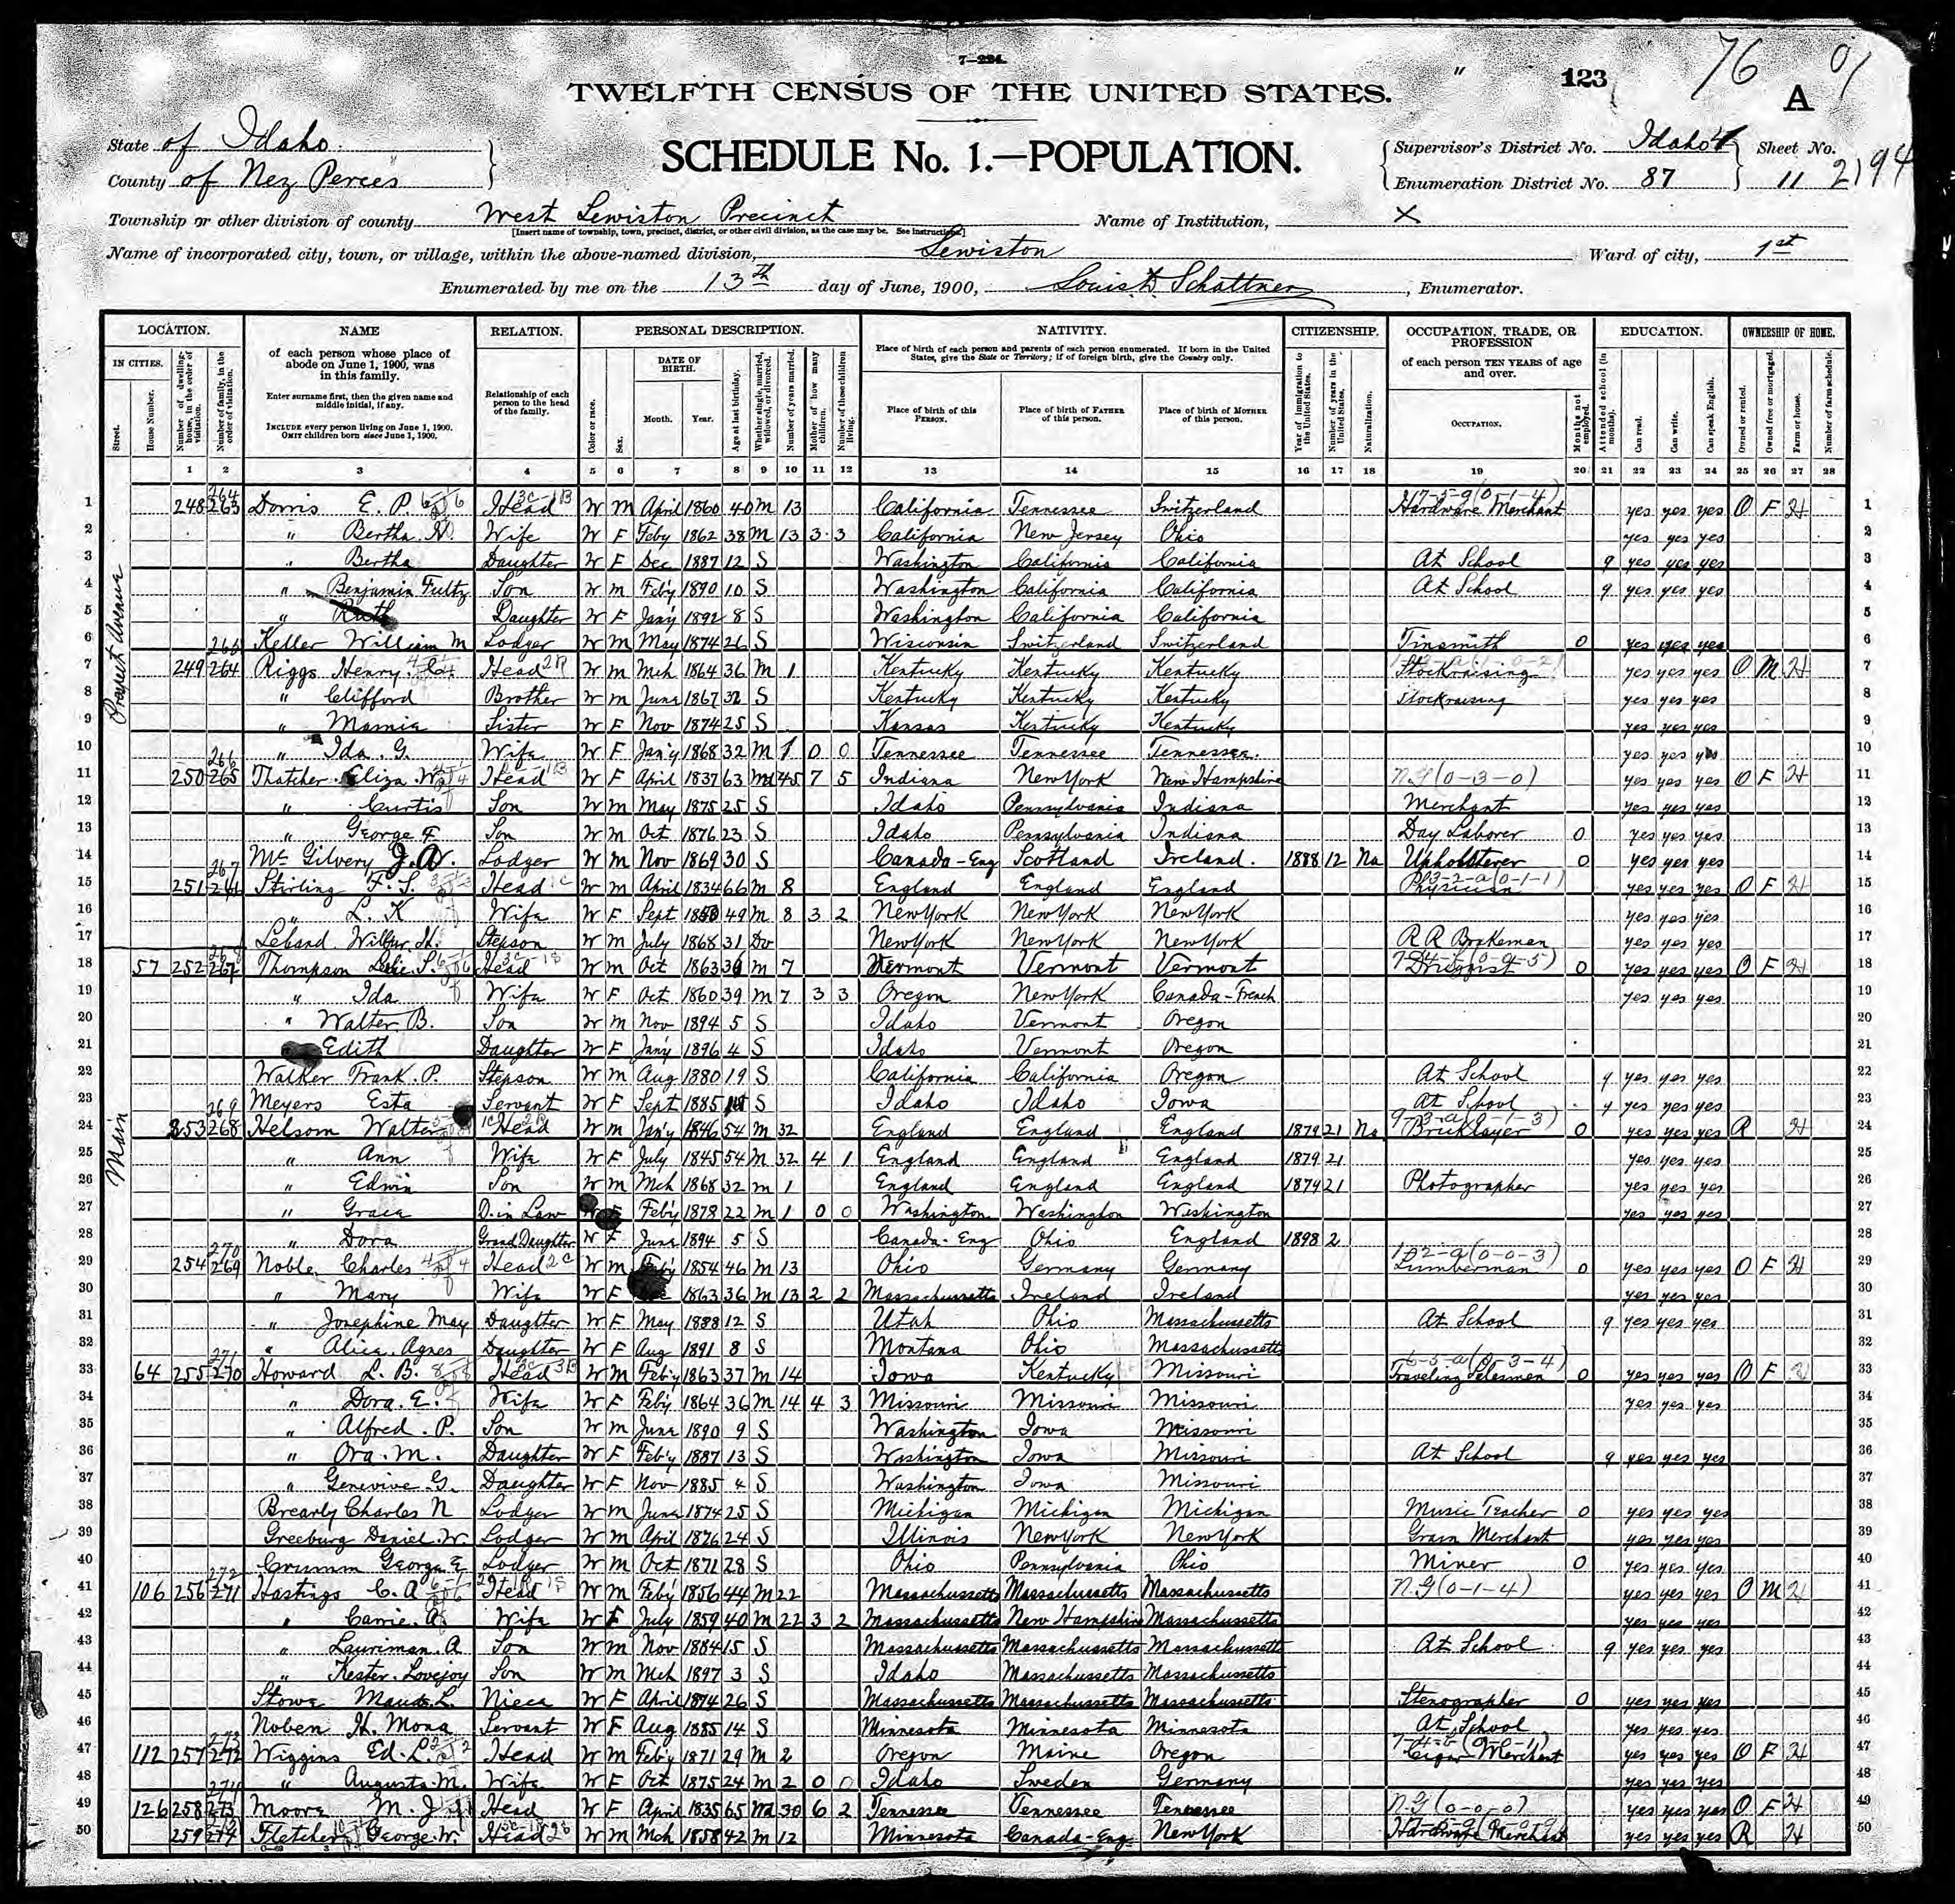 7—224.
123 76 01
A
TWELFTH CENSUS OF THE UNITED STATES.
State of Idaho
County of Nez Perces
SCHEDULE No. 1.—POPULATION.
Supervisor's District No. Idaho Sheet No.
Enumeration District No. 87 11 2194
Township or other division of county West Lewiston Precinct Name of Institution, X
[Insert name of township, town, precinct, district, or other civil division, as the case may be. See instructions.]
Name of incorporated city, town, or village, within the above-named division, Lewiston Ward of city, 1st
Enumerated by me on the 13th day of June, 1900, Louis D. Schattner, Enumerator.
LOCATION. NAME RELATION. PERSONAL DESCRIPTION. NATIVITY. CITIZENSHIP. OCCUPATION, TRADE, OR PROFESSION EDUCATION. OWNERSHIP OF HOME.
IN CITIES.
Street.
House Number.
Number of dwelling-house, in the order of visitation.
Number of family, in the order of visitation.
of each person whose place of abode on June 1, 1900, was in this family.
Enter surname first, then the given name and middle initial, if any.
INCLUDE every person living on June 1, 1900.
OMIT children born since June 1, 1900.
Relationship of each person to the head of the family.
Color or race.
Sex.
DATE OF BIRTH.
Month. Year.
Age at last birthday.
Whether single, married, widowed, or divorced.
Number of years married.
Mother of how many children.
Number of these children living.
Place of birth of each person and parents of each person enumerated. If born in the United States, give the State or Territory; if of foreign birth, give the Country only.
Place of birth of this PERSON.
Place of birth of FATHER of this person.
Place of birth of MOTHER of this person.
Year of immigration to the United States.
Number of years in the United States.
Naturalization.
of each person TEN YEARS of age and over.
OCCUPATION.
Months not employed.
Attended school (in months).
Can read.
Can write.
Can speak English.
Owned or rented.
Owned free or mortgaged.
Farm or house.
Number of farm schedule.
1 2 3 4 5 6 7 8 9 10 11 12 13 14 15 16 17 18 19 20 21 22 23 24 25 26 27 28
Prospect Avenue
Main
1 248 263 Dorris E. P. Head W M April 1860 40 M 13 California Tennessee Switzerland Hardware Merchant yes yes yes O F H 1
2 " Bertha H. Wife W F Feby 1862 38 M 13 3 3 California New Jersey Ohio yes yes yes 2
3 " Bertha Daughter W F Dec 1887 12 S Washington California California At School 9 yes yes yes 3
4 " Benjamin Fultz Son W M Feby 1890 10 S Washington California California At School 9 yes yes yes 4
5 " Ruth Daughter W F Jany 1892 8 S Washington California California 5
6 Keller William M Lodger W M May 1874 26 S Wisconsin Switzerland Switzerland Tinsmith 0 yes yes yes 6
7 249 264 Riggs Henry Head W M Mch 1864 36 M 1 Kentucky Kentucky Kentucky Stockraising yes yes yes O M H 7
8 " Clifford Brother W M June 1867 32 S Kentucky Kentucky Kentucky Stockraising yes yes yes 8
9 " Mamie Sister W F Nov 1874 25 S Kansas Kentucky Kentucky yes yes yes 9
10 " Ida G. Wife W F Jany 1868 32 M 1 0 0 Tennessee Tennessee Tennessee yes yes yes 10
11 250 265 Thatcher Eliza W Head W F April 1837 63 Wd 45 7 5 Indiana New York New Hampshire N.G (0-3-0) yes yes yes O F H 11
12 " Curtis Son W M May 1875 25 S Idaho Pennsylvania Indiana Merchant yes yes yes 12
13 " George F Son W M Oct 1876 23 S Idaho Pennsylvania Indiana Day Laborer 0 yes yes yes 13
14 Mc Gilvery J. A. Lodger W M Nov 1869 30 S Canada-Eng Scotland Ireland 1888 12 Na Upholsterer 0 yes yes yes 14
15 251 266 Stirling F. S. Head W M April 1834 66 M 8 England England England Physician yes yes yes O F H 15
16 " L. K Wife W F Sept 1850 49 M 8 3 2 New York New York New York yes yes yes 16
17 Leland Wilbur H. Stepson W M July 1868 31 Do New York New York New York R R Brakeman yes yes yes 17
18 57 252 267 Thompson S. Head W M Oct 1863 36 M 7 Vermont Vermont Vermont Druggist 0 yes yes yes O F H 18
19 " Ida Wife W F Oct 1860 39 M 7 3 3 Oregon New York Canada-French yes yes yes 19
20 " Walter B. Son W M Nov 1894 5 S Idaho Vermont Oregon 20
21 Edith Daughter W F Jany 1896 4 S Idaho Vermont Oregon 21
22 Walker Frank P. Stepson W M Aug 1880 19 S California California Oregon At School 9 yes yes yes 22
23 Meyers Esta Servant W F Sept 1885 14 S Idaho Idaho Iowa At School 9 yes yes yes 23
24 253 268 Helsom Walter Head W M Jany 1846 54 M 32 England England England 1879 21 Na Bricklayer 0 yes yes yes R H 24
25 " Ann Wife W F July 1845 54 M 32 4 1 England England England 1879 21 yes yes yes 25
26 " Edwin Son W M Mch 1868 32 M 1 England England England 1879 21 Photographer yes yes yes 26
27 " Grace D. in Law Feby 1878 22 M 1 0 0 Washington Washington Washington yes yes yes 27
28 " Dora Grand Daughter W F June 1894 5 S Canada-Eng Ohio England 1898 2 28
29 254 269 Noble Charles Head W M Feby 1854 46 M 13 Ohio Germany Germany Lumberman 0 yes yes yes O F H 29
30 " Mary Wife W F 1863 36 M 13 2 2 Massachusetts Ireland Ireland yes yes yes 30
31 " Josephine May Daugtter W F May 1888 12 S Utah Ohio Massachusetts At School 9 yes yes yes 31
32 " Alice Agnes Daughter W F Aug 1891 8 S Montana Ohio Massachusetts 32
33 64 255 270 Howard L. B. Head W M Feby 1863 37 M 14 Iowa Kentucky Missouri Traveling Salesman 0 yes yes yes O F H 33
34 " Dora E. Wife W F Feby 1864 36 M 14 4 3 Missouri Missouri Missouri yes yes yes 34
35 " Alfred P. Son W M June 1890 9 S Washington Iowa Missouri 35
36 " Ora M. Daughter W F Feby 1887 13 S Washington Iowa Missouri At School 9 yes yes yes 36
37 " Genevive G. Daughter W F Nov 1885 4 S Washington Iowa Missouri 37
38 Brearly Charles N Lodger W M June 1874 25 S Michigan Michigan Michigan Music Teacher 0 yes yes yes 38
39 Greeburg Daniel W. Lodger W M April 1876 24 S Illinois New York New York Grain Merchant yes yes yes 39
40 Crumm George E Lodger W M Oct 1871 28 S Ohio Pennsylvania Ohio Miner 0 yes yes yes 40
41 106 256 271 Hastings C. A Head W M Feby 1856 44 M 22 Massachusetts Massachusetts Massachusetts N.G (0-1-4) yes yes yes O M H 41
42 " Carrie A. Wife W F July 1859 40 M 22 3 2 Massachusetts New Hampshire Massachusetts yes yes yes 42
43 " Lauriman A Son W M Nov 1884 15 S Massachusetts Massachusetts Massachusetts At School 9 yes yes yes 43
44 " Kester Lovejoy Son W M Mch 1897 3 S Idaho Massachusetts Massachusetts 44
45 Stowe Maude L. Niece W F April 1874 26 S Massachusetts Massachusetts Massachusetts Stenographer 0 yes yes yes 45
46 Noben H. Mona Servant W F Aug 1885 14 S Minnesota Minnesota Minnesota At School yes yes yes 46
47 112 257 272 Wiggins Ed. L. Head W M Feby 1871 29 M 2 Oregon Maine Oregon Cigar Merchant yes yes yes O F H 47
48 " Augusta M. Wife W F Oct 1875 24 M 2 0 0 Idaho Sweden Germany yes yes yes 48
49 126 258 273 Moore M. J Head W F April 1835 65 Wd 30 6 2 Tennessee Tennessee Tennessee N.G (0-0-0) yes yes yes O F H 49
50 259 274 Fletcher George W. Head W M Mch 1858 42 M 12 Minnesota Canada-Eng. New York Hardware Merchant yes yes yes R H 50